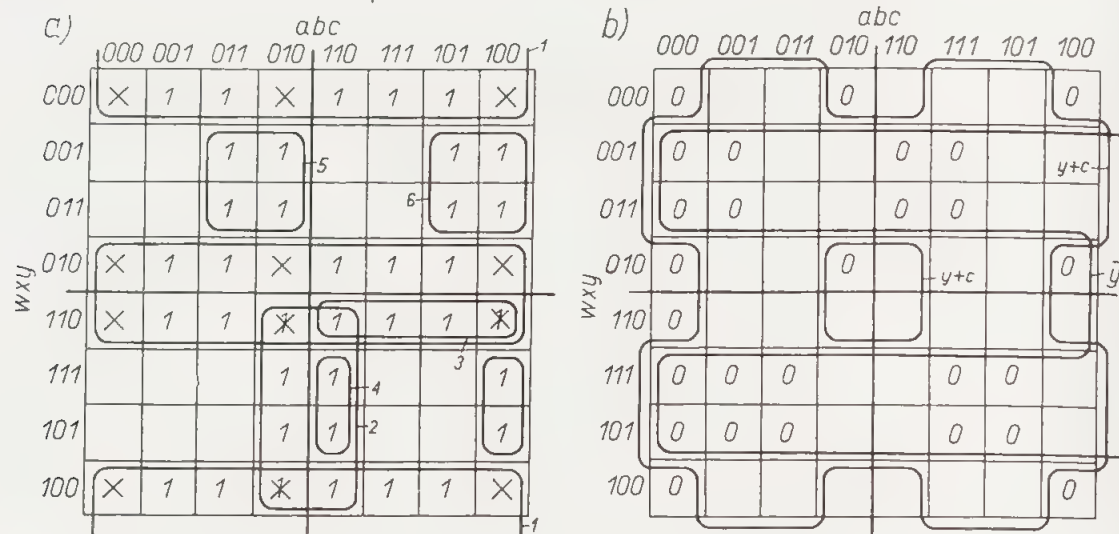 a)
abc
000 001 011 010 110 111 101 100 1
000 × 1 1 × 1 1 1 ×
001 1 1 5 1 1
011 1 1 6 1 1
010 × 1 1 × 1 1 1 ×
110 × 1 1 1 1 1 1 1
3
111 1 1 4 1
101 1 1 2 1
100 × 1 1 1 1 1 1 ×
1
wxy
b)
abc
000 001 011 010 110 111 101 100
000 0 0 0
001 0 0 0 0 y+c
011 0 0 0 0
010 0 0 y+c 0 ȳ
110 0
111 0 0 0 0 0
101 0 0 0 0 0
100 0 0
wxy